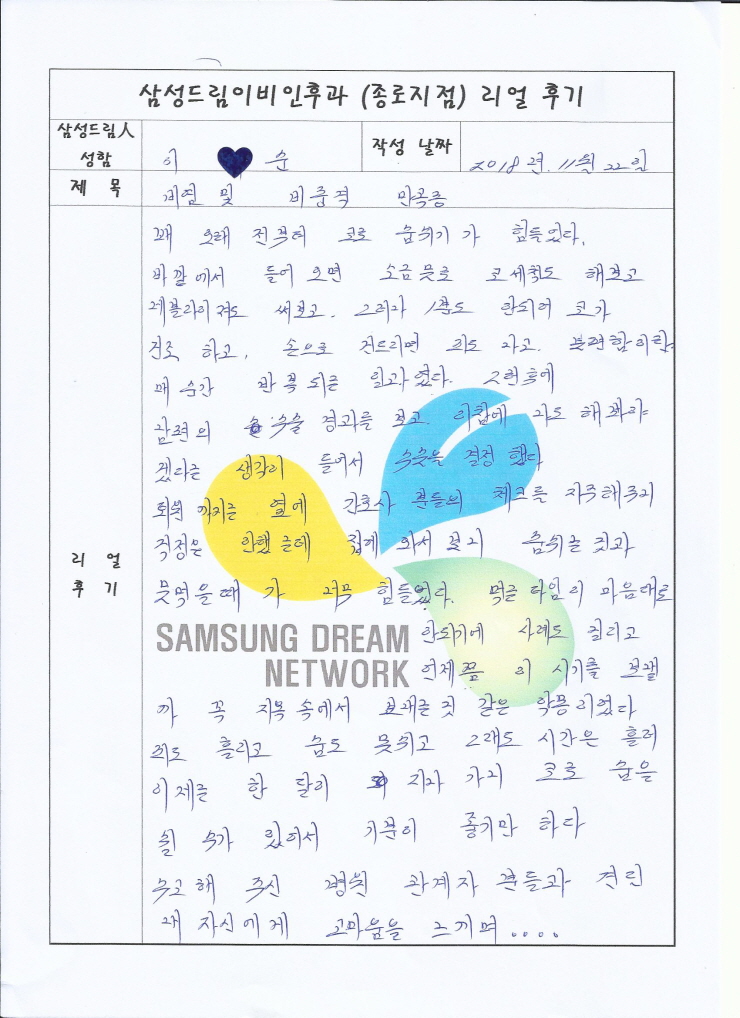 삼성드림이비인후과 (종로지점) 리얼 후기
삼성드림人 성함
이 순
작성 날짜
2018년. 11월 22일
제 목
비염 및 비중격 만곡증
리 얼 후 기
꽤 오래 전부터 코로 숨쉬기가 힘들었다.
바깥에서 들어오면 소금물로 코세척도 해보고
써보고. 그러나 1분도 안되어 코가
건조 하고, 손으로 건드리면 피도 나고. 불편함이란
매 순간 반복되는 일과였다. 2년후에
남편의 수술 경과를 보고. 이참에 나도 해봐야
겠다는 생각이 들어서 수술을 결정 했다
퇴원 까지는 옆에 간호사 분들의 체크를 자주해주니
걱정은 안했는데 집에 와서 보니 숨쉬는 것과
못먹을때 가 너무 힘들었다. 먹는 타임이 마음대로
SAMSUNG DREAM NETWORK
안되기에 사레도 걸리고
언제쯤 이 시기를 보낼
까 꼭 지옥 속에서 보내는것 같은 악몽이었다
피도 흘리고 숨도 못쉬고 그래도 시간은 흘러
이제는 한 달이 지나 가니 코로 숨을
쉴 수가 있어서 기분이 좋기만 하다
수고해 주신 병원 관계자 분들과 견딘
내 자신에게 고마움을 느끼며....